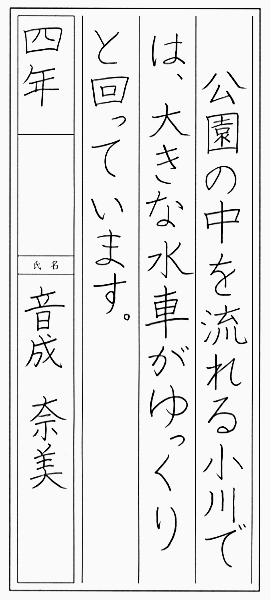 公園の中を流れる小川で
は、大きな水車がゆっくり
と回っています。
四年
氏名
音成 奈美